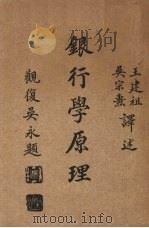 王建祖
吳宗燾
譯述
銀行學原理
觀復吳永題